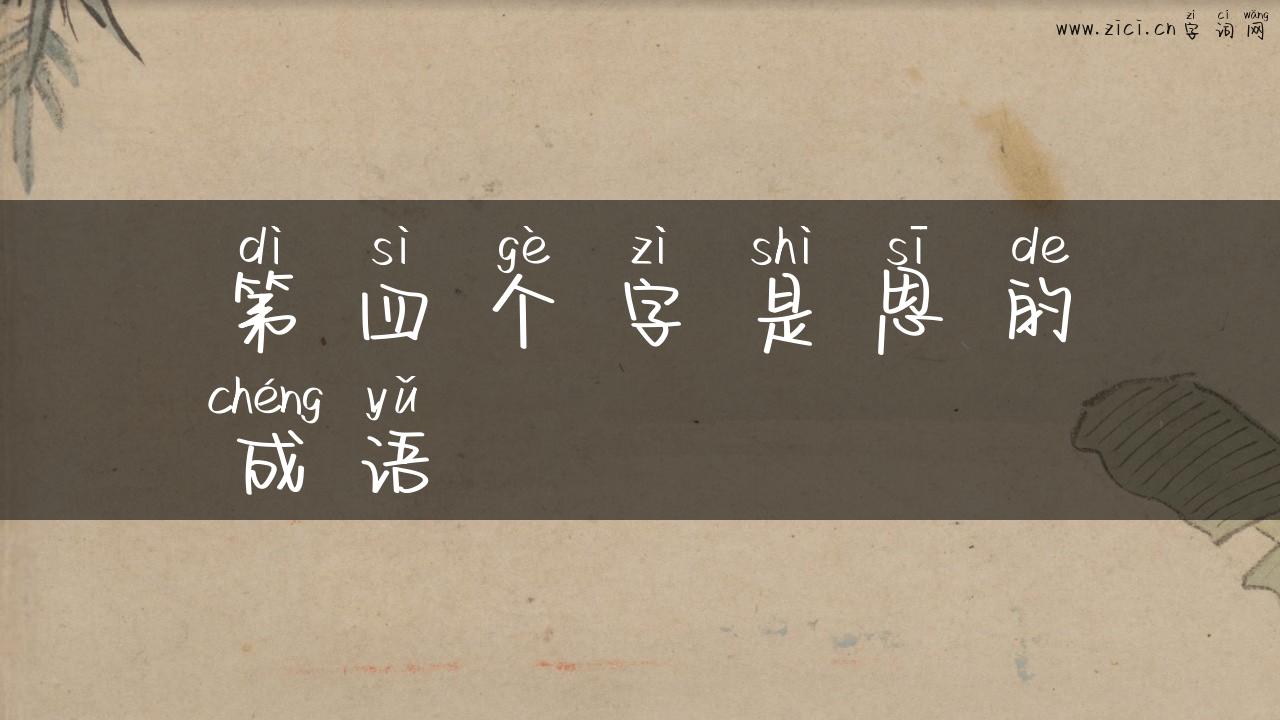 zì cí wǎng
www.zici.cn 字词网
dì sì gè zì shì sī de
第四个字是思的
chéng yǔ
成语